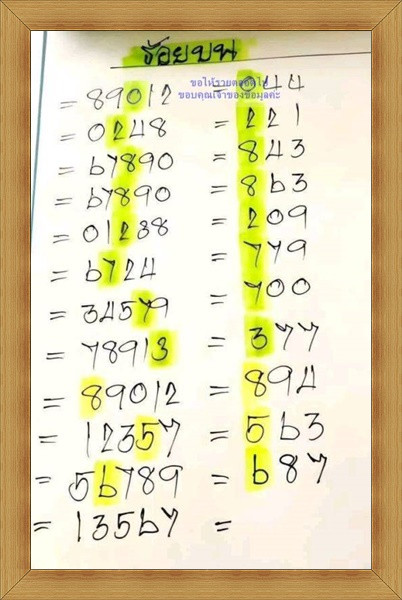 ร้อยบน
ขอให้รวยตลอดไป
ขอบคุณเจ้าของข้อมูลค่ะ
= 89012 = 044
= 0248 = 221
= 67890 = 843
= 67890 = 863
= 01238 = 209
= 6724 = 779
= 34579 = 700
= 78913 = 377
= 89012 = 894
= 12357 = 563
= 56789 = 687
= 13567 =